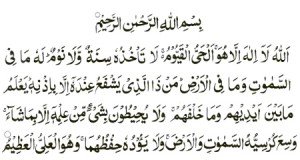 بِسْمِ اللهِ الرَّحْمٰنِ الرَّحِيْمِ
اَللهُ لَآ اِلٰهَ اِلَّا هُوَ ۚ اَلْحَيُّ الْقَيُّوْمُ ۚ لَا تَاْخُذُهٗ سِنَةٌ وَّلَا نَوْمٌ ؕ لَهٗ مَا فِى
السَّمٰوٰتِ وَمَا فِى الْاَرْضِ ؕ مَنْ ذَا الَّذِىْ يَشْفَعُ عِنْدَهٗۤ اِلَّا بِاِذْنِهٖ ؕ يَعْلَمُ
مَا بَيْنَ اَيْدِيْهِمْ وَمَا خَلْفَهُمْ ۚ وَلَا يُحِيْطُوْنَ بِشَىْءٍ مِّنْ عِلْمِهٖۤ اِلَّا بِمَا شَآءَ ۚ
وَسِعَ كُرْسِيُّهُ السَّمٰوٰتِ وَالْاَرْضَ ۚ وَلَا يَـُٔوْدُهٗ حِفْظُهُمَا ۚ وَهُوَ الْعَلِىُّ الْعَظِيْمُ